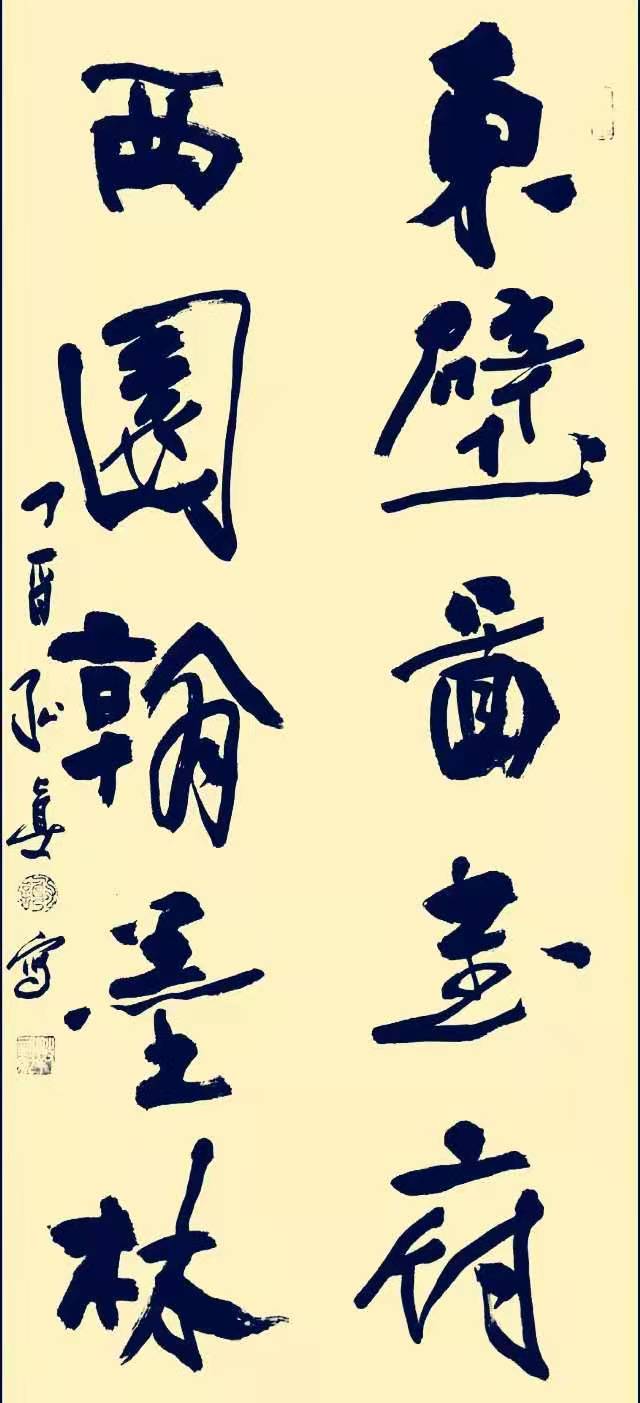 東壁啚書府
西園翰墨林
丁酉弘真寫